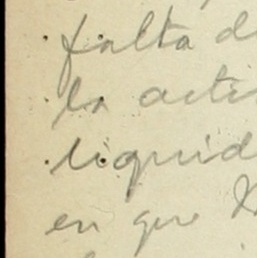 falta d
la acti
liquid
en que